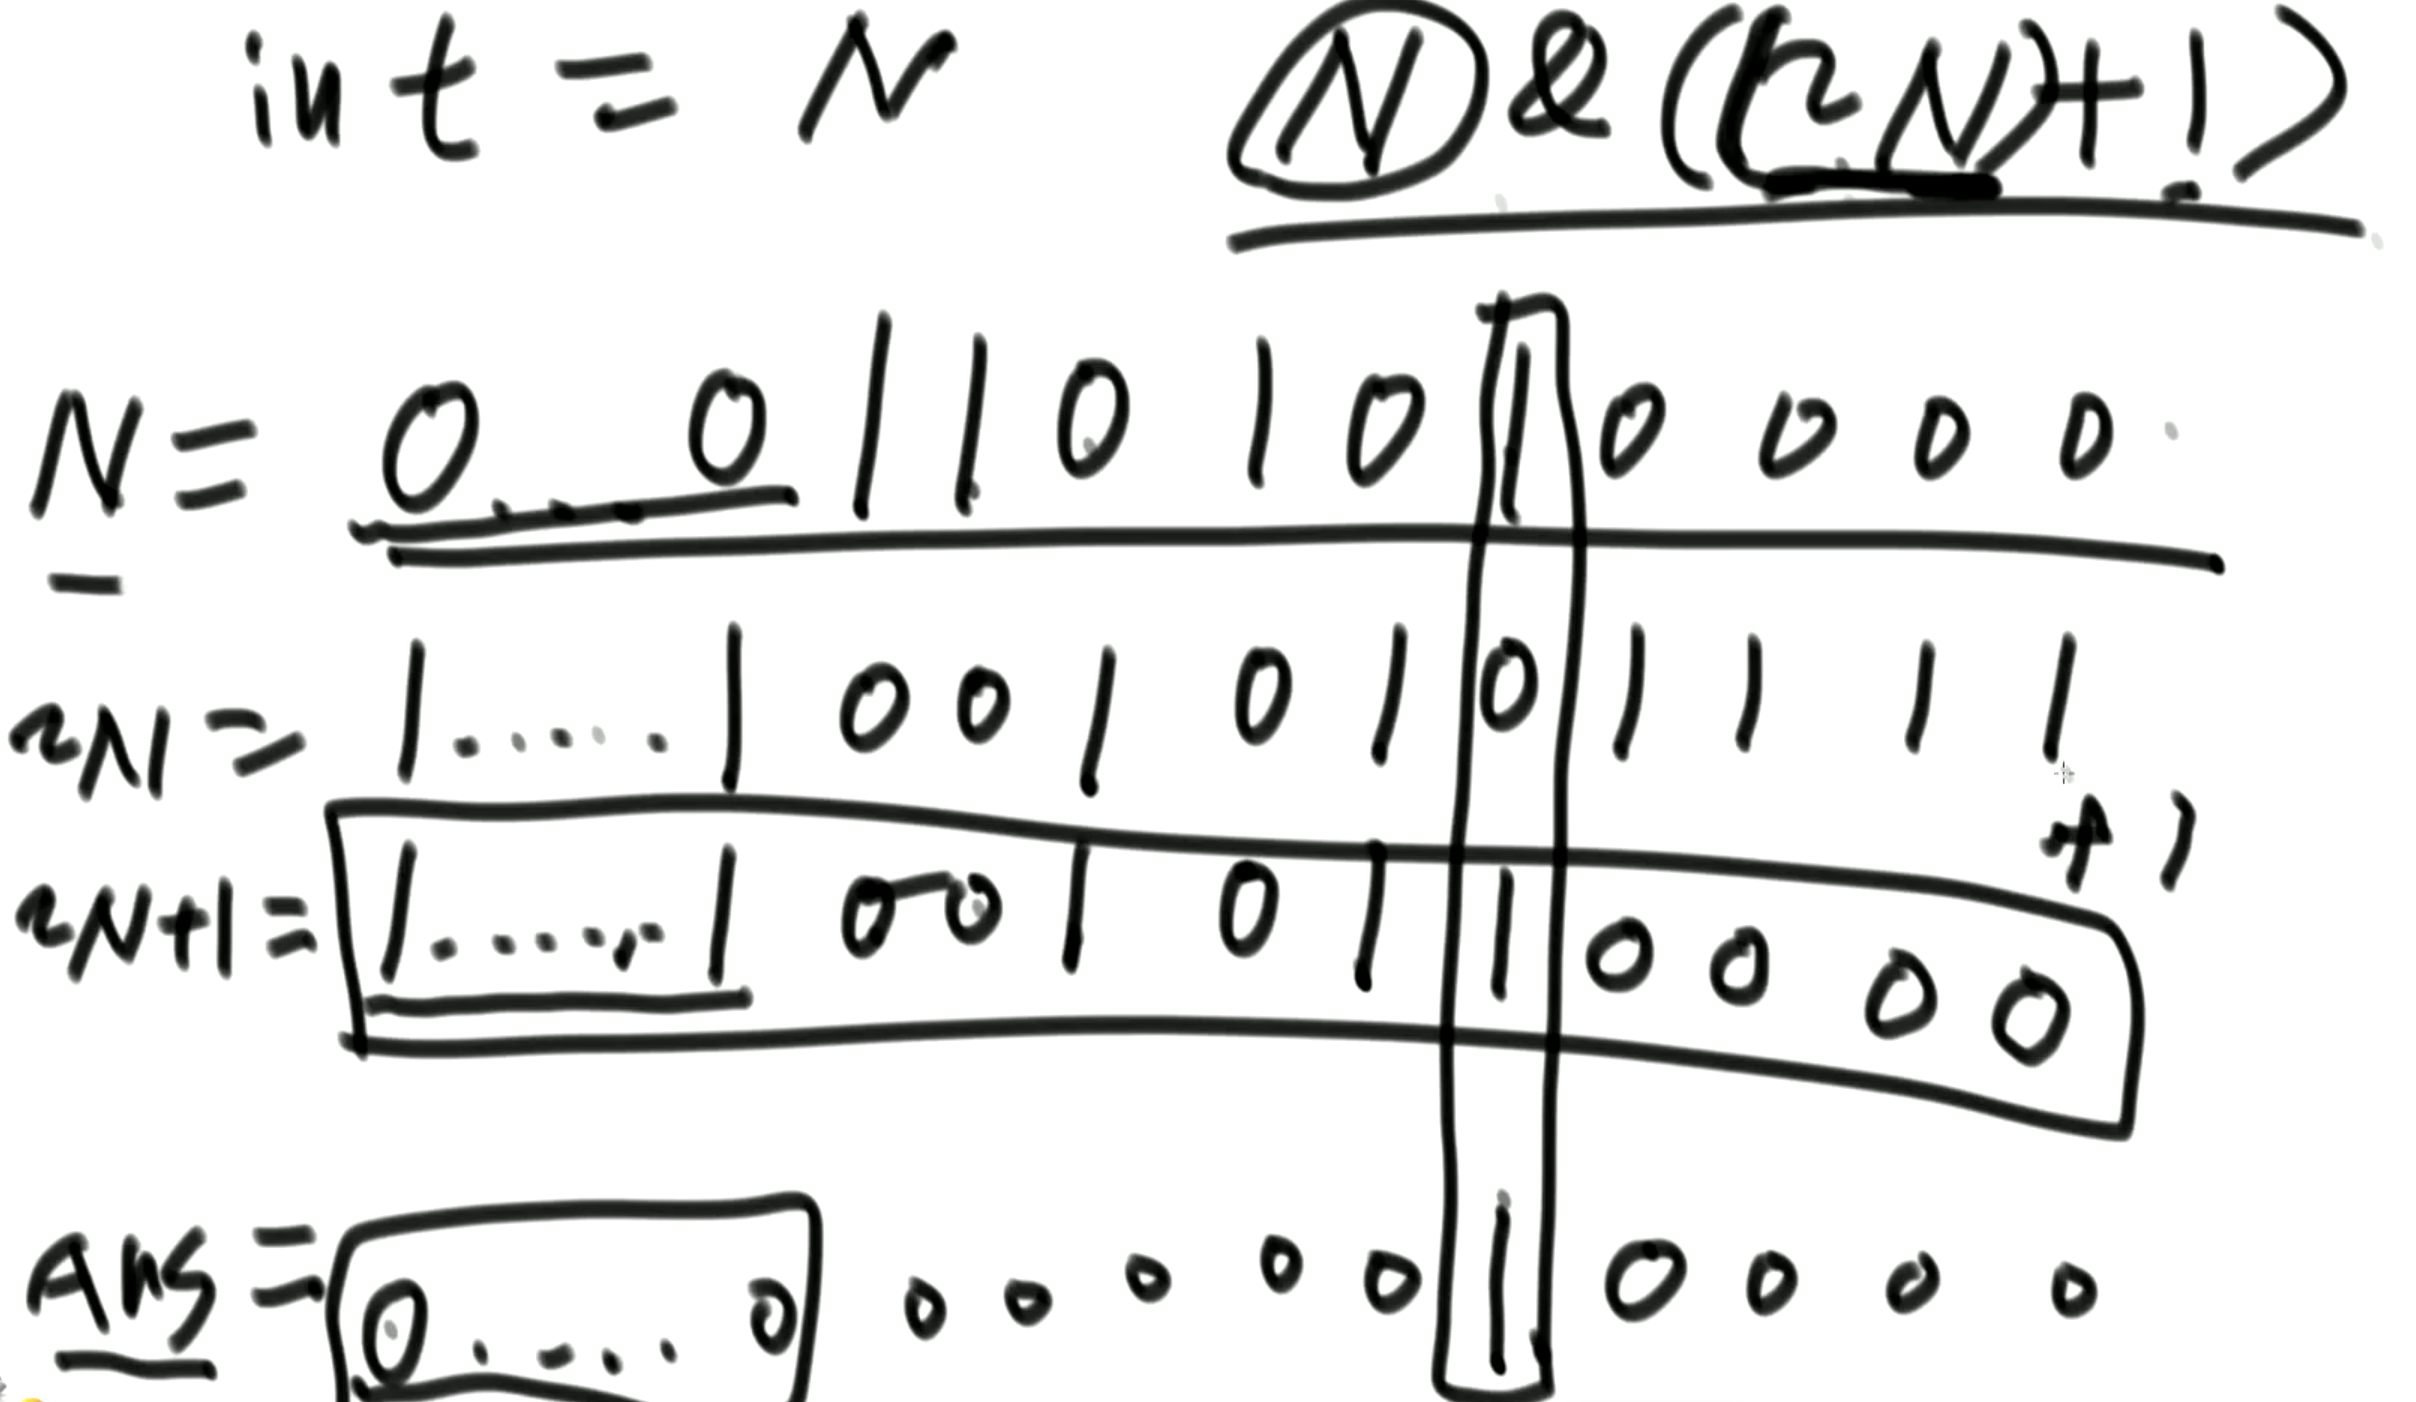 int = N N & ((~N)+1)
N = 0....0 1 1 0 1 0 1 0 0 0 0
~N = 1.....1 0 0 1 0 1 0 1 1 1 1
+1
~N+1 = 1......1 0 0 1 0 1 1 0 0 0 0
Ans = 0.....0 0 0 0 0 0 1 0 0 0 0